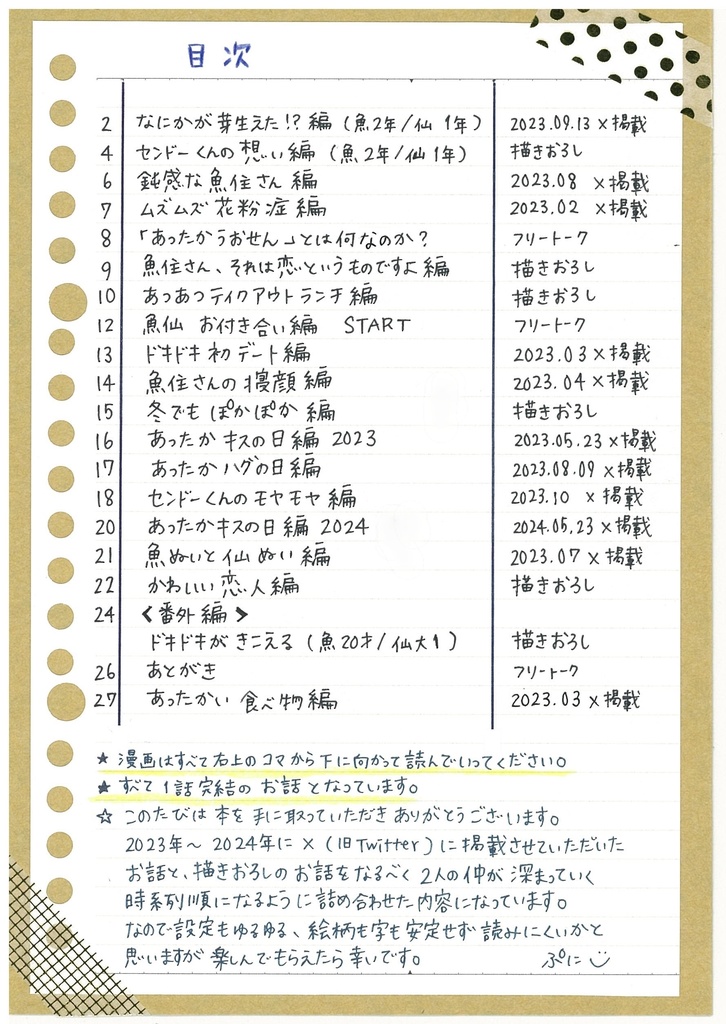 目次
2 なにかが芽生えた!?編 (魚2年/仙1年) 2023.09.13 X掲載
4 センドーくんの想い編 (魚2年/仙1年) 描きおろし
6 鈍感な魚住さん編 2023.08 X掲載
7 ムズムズ花粉症編 2023.02 X掲載
8 「あったかうおせん」とは何なのか? フリートーク
9 魚住さん、それは恋というものですよ編 描きおろし
10 あつあつテイクアウトランチ編 描きおろし
12 魚仙 お付き合い編 START フリートーク
13 ドキドキ初デート編 2023.03 X掲載
14 魚住さんの寝顔編 2023.04 X掲載
15 冬でもぽかぽか編 描きおろし
16 あったかキスの日編 2023 2023.05.23 X掲載
17 あったかハグの日編 2023.08.09 X掲載
18 センドーくんのモヤモヤ編 2023.10 X掲載
20 あったかキスの日編 2024 2024.05.23 X掲載
21 魚ぬいと仙ぬい編 2023.07 X掲載
22 かわいい恋人編 描きおろし
24 <番外編>
ドキドキがきこえる (魚20才/仙大1) 描きおろし
26 あとがき フリートーク
27 あったかい食べ物編 2023.03 X掲載
★ 漫画はすべて右上のコマから下に向かって読んでいってください。
★ すべて1話完結のお話となっています。
☆ このたびは本を手に取っていただきありがとうございます。
2023年〜2024年にX(旧Twitter)に掲載させていただいた
お話と、描きおろしのお話をなるべく2人の仲が深まっていく
時系列順になるように詰め合わせた内容になっています。
なので設定もゆるゆる、絵柄も字も安定せず読みにくいかと
思いますが楽しんでもらえたら幸いです。 ぷに